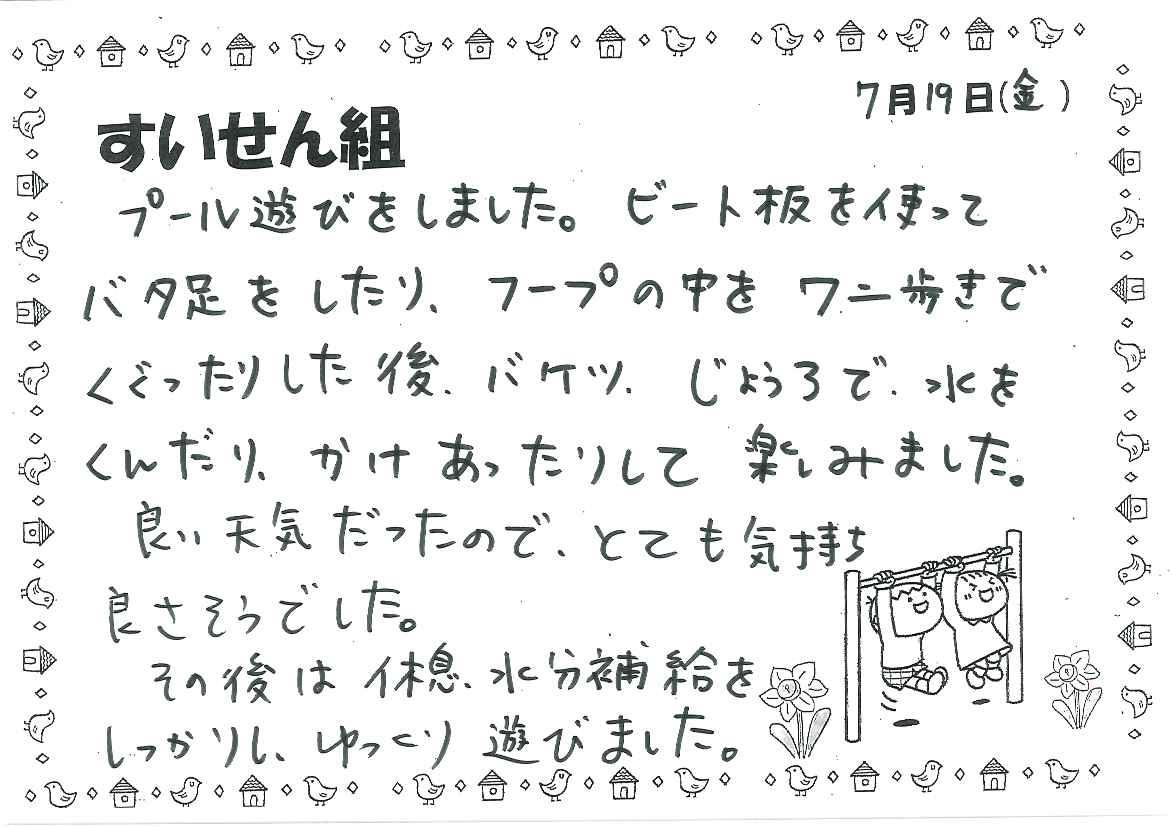 7月19日(金)
すいせん組
プール遊びをしました。ビート板を使って
バタ足をしたり、フープの中をワニ歩きで
くぐったりした後、バケツ、じょうろで、水を
くんだり、かけあったりして楽しみました。
良い天気だったので、とても気持ち
良さそうでした。
その後は休息、水分補給を
しっかりし、ゆっくり遊びました。